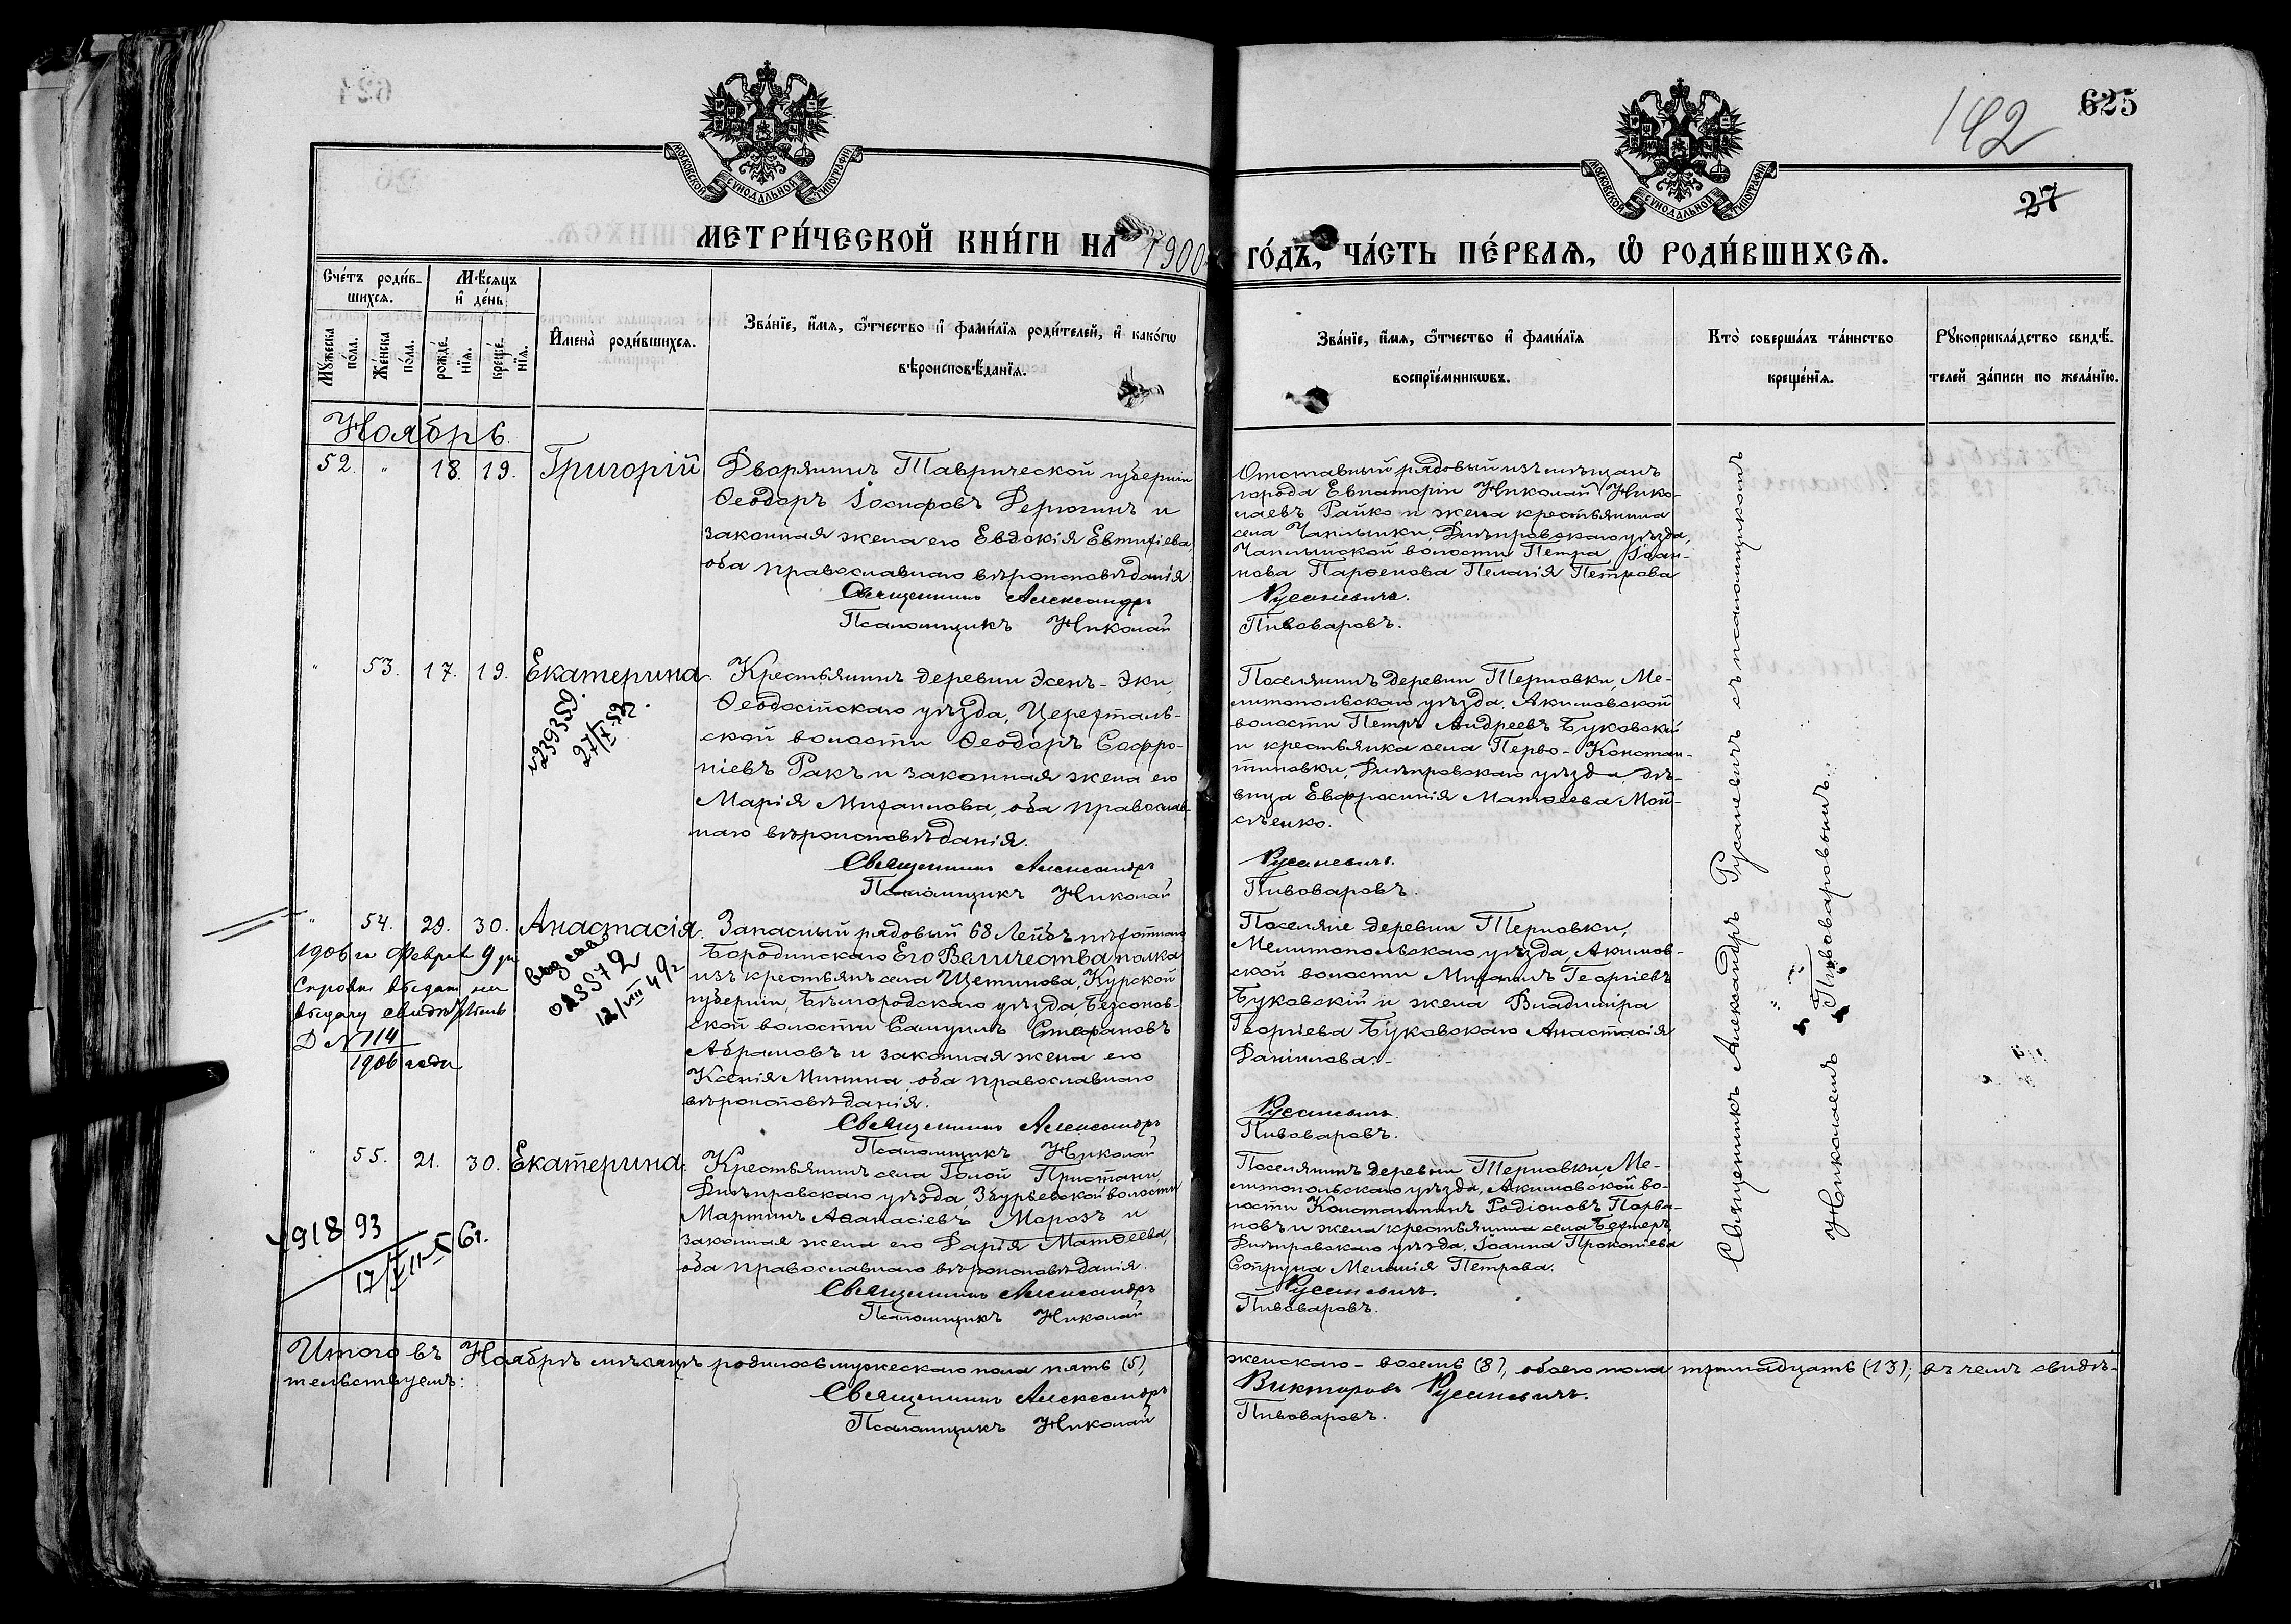 625
142
27
МОСКОВСКОЙ СѴНОДАЛЬНОЙ ТИПОГРАФІИ
МОСКОВСКОЙ СѴНОДАЛЬНОЙ ТИПОГРАФІИ
МЕТРИ́ЧЕСКОЙ КНИ́ГИ НА 1900
ГО́ДЪ, ЧА́СТЬ ПЕ́РВАѦ, Ѡ҆ РОДИ́ВШИХСѦ.
Сче́тъ роди́в-
шихсѧ.
Мꙋ́жеска по́ла.
Же́нска по́ла.
Мѣ́сѧцъ
и҆ де́нь
рожде́нїѧ.
креще́нїѧ.
И҆мена̀ роди́вшихсѧ.
Зва́нїе, и҆́мѧ, ѻ҆́тчество и҆ фами́лїѧ роди́телей, и҆ како́гѡ
вѣроисповѣ́данїѧ.
Зва́нїе, и҆́мѧ, ѻ҆́тчество и҆ фами́лїѧ
воспрїе́мникѡвъ.
Кто̀ соверша́лъ та́инство
креще́нїѧ.
Рꙋкоприкла́дство свидѣ́-
телей за́писи по жела́нїю.
Ноябрь.
52. " 18. 19. Григорій
Дворянинъ Таврической губерніи
Ѳеодоръ Іосифовъ Дерюгинъ и
законная жена его Евдокія Евтихіева,
оба православнаго вѣроисповѣданія.
Священникъ Александръ
Псаломщикъ Николай
Отставный рядовый изъ мѣщанъ
города Евпаторіи Николай Нико-
лаевъ Райко и жена крестьянина
села Чаплынки, Днѣпровскаго уѣзда,
Чаплынской волости Петра Іоан-
нова Парѳенова Пелагія Петрова
Русаневичъ.
Пивоваровъ.
" 53. 17. 19. Екатерина.
№ 239359.
Крестьянинъ деревни Эсенъ-Эки,
Ѳеодосійскаго уѣзда, Цереталь-
ской волости Ѳеодоръ Софро-
ніевъ Ракъ и законная жена его
Марія Михаилова, оба православ-
наго вѣроисповѣданія.
Священникъ Александръ
Псаломщикъ Николай
Поселянинъ деревни Терновки, Ме-
литопольскаго уѣзда, Акимовской
волости Петръ Андреевъ Буковскій
и крестьянка села Перво-Констан-
тиновки, Днѣпровскаго уѣзда, дѣ-
вица Евфросинія Матѳеева Мой-
сѣенко.
Русаневичъ.
Пивоваровъ.
" 54. 29. 30. Анастасія.
1906 го Феврал 9 дня
Справка выдана на
выдачу свидѣтельств
Д № 114
1906 года
Запасный рядовый 68 Лейбъ-пѣхотнаго
Бородинскаго Его Величества полка
изъ крестьянъ села Щетинова, Курской
губерніи, Бѣлгородскаго уѣзда, Безсонов-
ской волости Самуилъ Стефановъ
Абрамовъ и законная жена его
Ксенія Минина, оба православнаго
вѣроисповѣданія.
Священникъ Александръ
Псаломщикъ Николай
Поселяне деревни Терновки,
Мелитопольскаго уѣзда, Акимов-
ской волости Михаилъ Георгіевъ
Буковскій и жена Владиміра
Георгіева Буковскаго Анастасія
Даніилова.
Русаневичъ.
Пивоваровъ.
" 55. 21. 30. Екатерина.
91893
Крестьянинъ села Голой Пристани,
Днѣпровскаго уѣзда, Збурьевской волости
Мартинъ Аѳанасіевъ Морозъ и
законная жена его Дарія Матѳеева,
оба православнаго вѣроисповѣданія.
Священникъ Александръ
Псаломщикъ Николай
Поселянинъ деревни Терновки, Ме-
литопольскаго уѣзда, Акимовской во-
лости Константинъ Родіоновъ
и жена крестьянина села Бехтеръ,
Днѣпровскаго уѣзда, Іоанна Прокопіева
Сопруна Меланія Петрова.
Русаневичъ.
Пивоваровъ.
Священникъ Александръ Русаневичъ съ псаломщикомъ
Николаемъ Пивоваровымъ.
Итого въ Ноябрѣ мѣсяцѣ родилось мужескаго пола пять (5),
женскаго - восемь (8), обоего пола тринадцать (13); въ чемъ свидѣ-
тельствуемъ:
Священникъ Александръ
Викторовъ Русаневичъ.
Псаломщикъ Николай
Пивоваровъ.